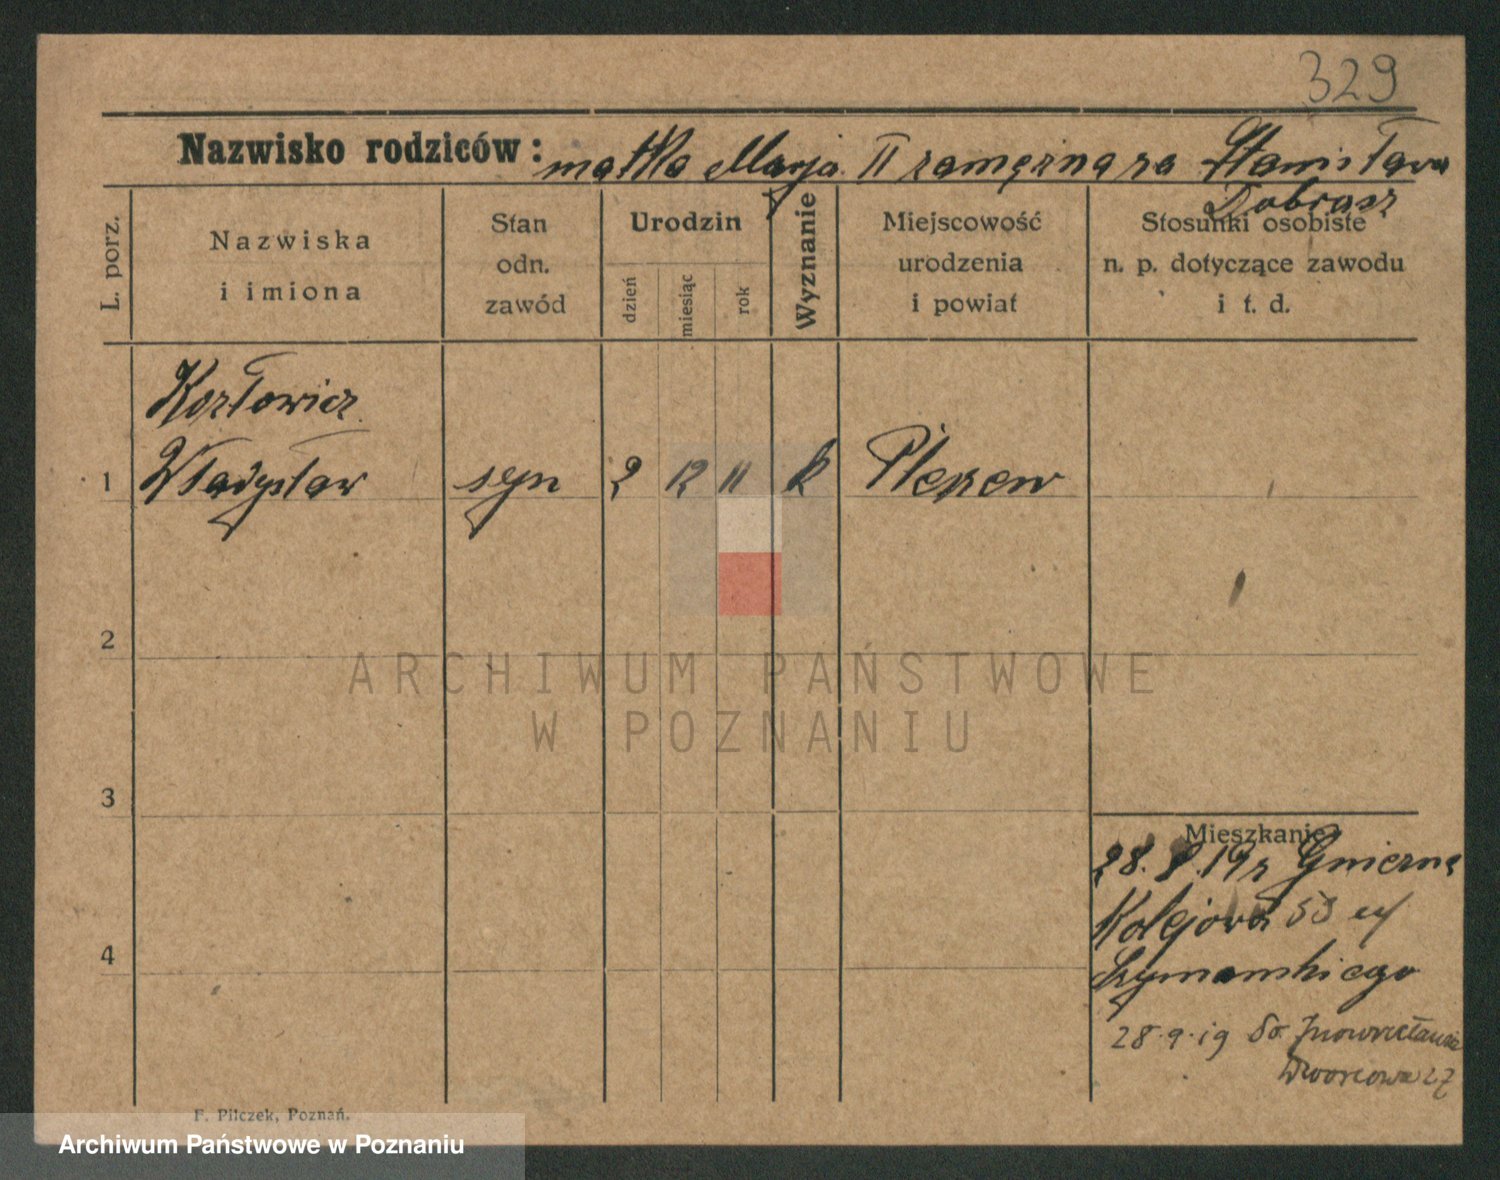 329
Nazwisko rodziców: matka Marja II zamężna za Stanisława
Dobrasz
L. porz.
Nazwiska
i imiona
Stan
odn.
zawód
Urodzin
dzień
miesiąc
rok
Wyznanie
Miejscowość
urodzenia
i powiat
Stosunki osobiste
n. p. dotyczące zawodu
i t. d.
Kozłowicz
1 Władysław syn 2 12 11 k Pleszew
2
3
4
Mieszkanie
28.8.19 z Gniezna
Kolejowa 53
Szymańskiego
28.9.19 do Inowrocławia
Dworcowa 27
F. Pilczek, Poznań.
ARCHIWUM PAŃSTWOWE
W POZNANIU
Archiwum Państwowe w Poznaniu